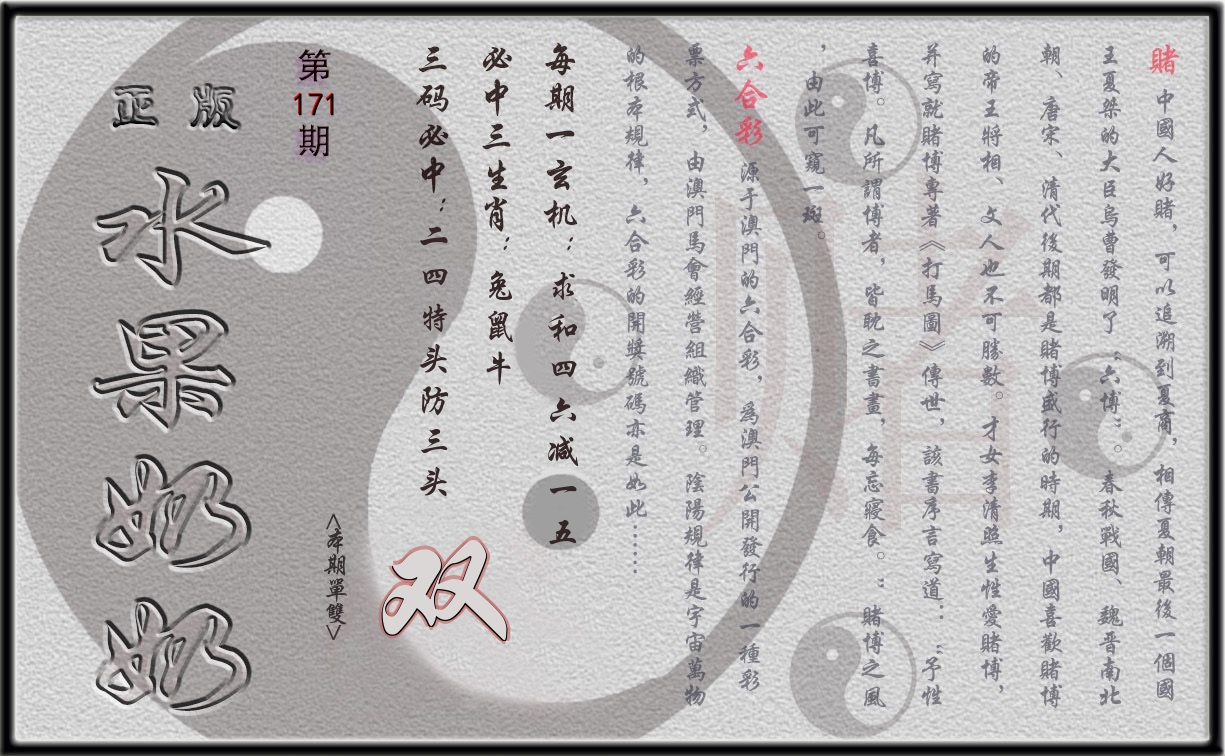 賭 中國人好賭，可以追溯到夏商，相傳夏朝最後一個國
王夏桀的大臣烏曹發明了“六博”。春秋戰國、魏晋南北
朝、唐宋、清代後期都是賭博盛行的時期，中國喜歡賭博
的帝王將相、文人也不可勝數。才女李清照生性愛賭博，
并寫就賭博專著《打馬圖》傳世，該書序言寫道：“予性
喜博。凡所謂博者，皆耽之書畫，每忘寢食。”賭博之風
，由此可窺一斑。
六合彩 源于澳門的六合彩，爲澳門公開發行的一種彩
票方式，由澳門馬會經營組織管理。陰陽規律是宇宙萬物
的根本規律，六合彩的開獎號碼亦是如此……
每期一玄机：求和四六减一五
必中三生肖：兔鼠牛
三码必中：二四特头防三头
双
<本期單雙>
第
171
期
正版
水果奶奶
賭